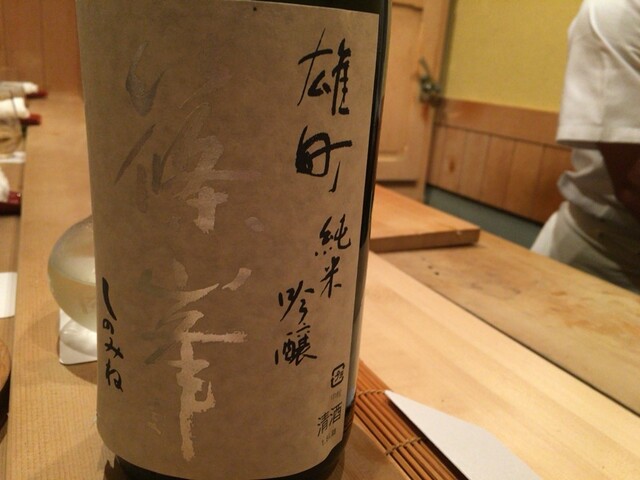 雄町
純米
吟醸
篠峯
しのみね
清酒